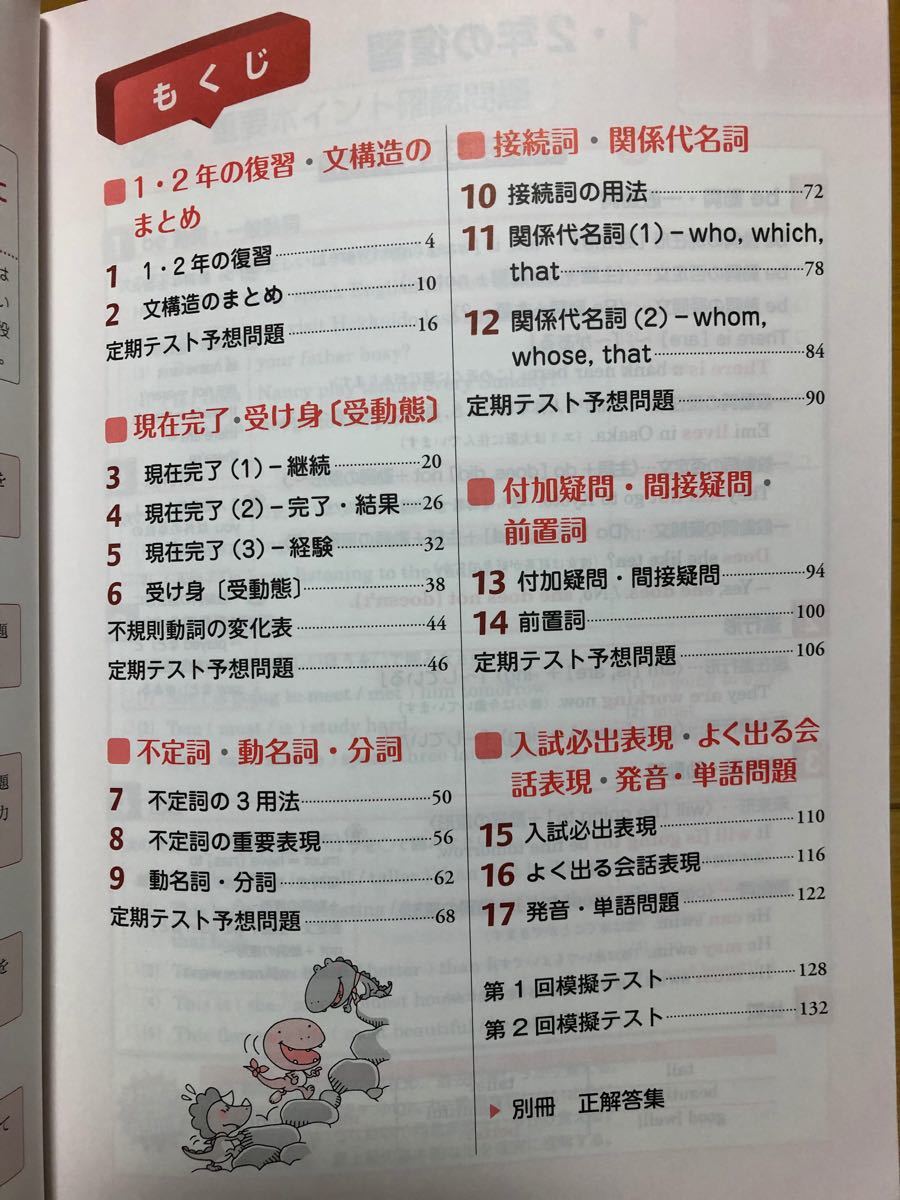 もくじ
1・2年の復習・文構造の
まとめ
1 1・2年の復習 4
2 文構造のまとめ 10
定期テスト予想問題 16
現在完了・受け身〔受動態〕
3 現在完了(1)−継続 20
4 現在完了(2)−完了・結果 26
5 現在完了(3)−経験 32
6 受け身〔受動態〕 38
不規則動詞の変化表 44
定期テスト予想問題 46
不定詞・動名詞・分詞
7 不定詞の3用法 50
8 不定詞の重要表現 56
9 動名詞・分詞 62
定期テスト予想問題 68
接続詞・関係代名詞
10 接続詞の用法 72
11 関係代名詞(1)−who, which,
that 78
12 関係代名詞(2)−whom,
whose, that 84
定期テスト予想問題 90
付加疑問・間接疑問・
前置詞
13 付加疑問・間接疑問 94
14 前置詞 100
定期テスト予想問題 106
入試必出表現・よく出る会
話表現・発音・単語問題
15 入試必出表現 110
16 よく出る会話表現 116
17 発音・単語問題 122
第1回模擬テスト 128
第2回模擬テスト 132
▶ 別冊 正解答集